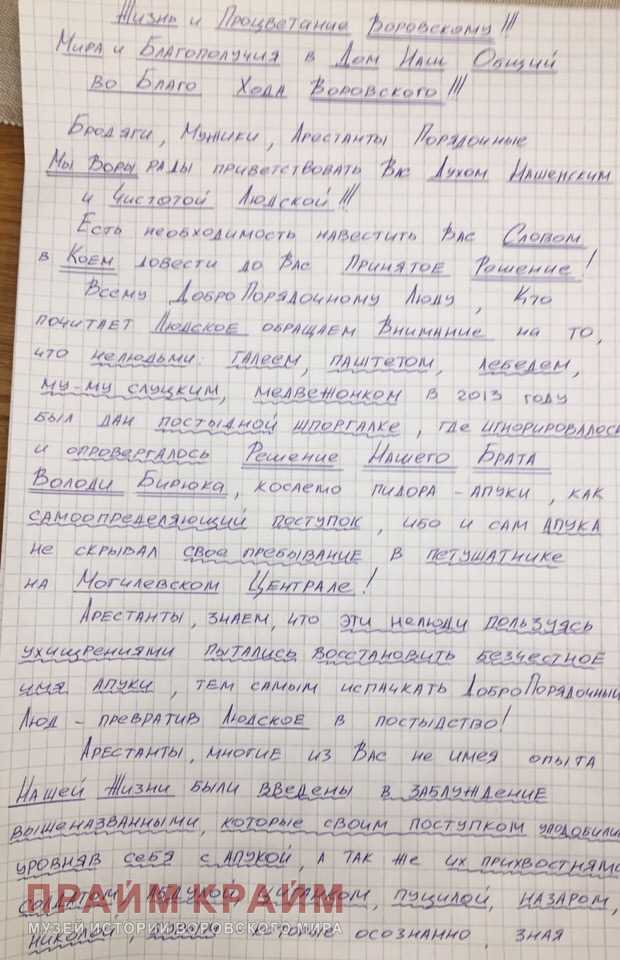 Жизнь и Процветание Воровскому!!!
Мира и Благополучия в Дом Наш Общий
во Благо Хода Воровского!!!
Бродяги, Мужики, Арестанты Порядочные
Мы Воры рады приветствовать Вас Духом Нашенским
и Чистотой Людской!!!
Есть необходимость навестить Вас Словом
в Коем довести до Вас Принятое Решение!
Всему ДоброПорядочному Люду, Кто
почитает Людское обращаем Внимание на то,
что нелюдьми: талеем, паштетом, лебедем,
му-му слуцким, медвежонком в 2013 году
был дан постыдной шпоргалке, где игнорировалось
и опровергалось Решение Нашего Брата
Володи Бирюка, косаемо пидора-апуки, как
самоопределяющий поступок, ибо и сам апука
не скрывал свое пребывание в петушатнике
на Могилевском Централе!
Арестанты, знаем, что эти нелюди пользуясь
ухищрениями пытались восстановить безчестное
имя апуки, тем самым испачкать ДоброПорядочный
Люд - превратив Людское в постыдство!
Арестанты, многие из Вас не имея опыта
Нашей Жизни были введены в заблуждение
вышеназванными, которые своим поступком уподобили
уровняв себя с апукой, а так же их прихвостнями
солдатом, пуцилой, назаром,
николой, которые осознанно, зная
ПРАЙМ КРАЙМ
МУЗЕЙ ИСТОРИИ ВОРОВСКОГО МИРА